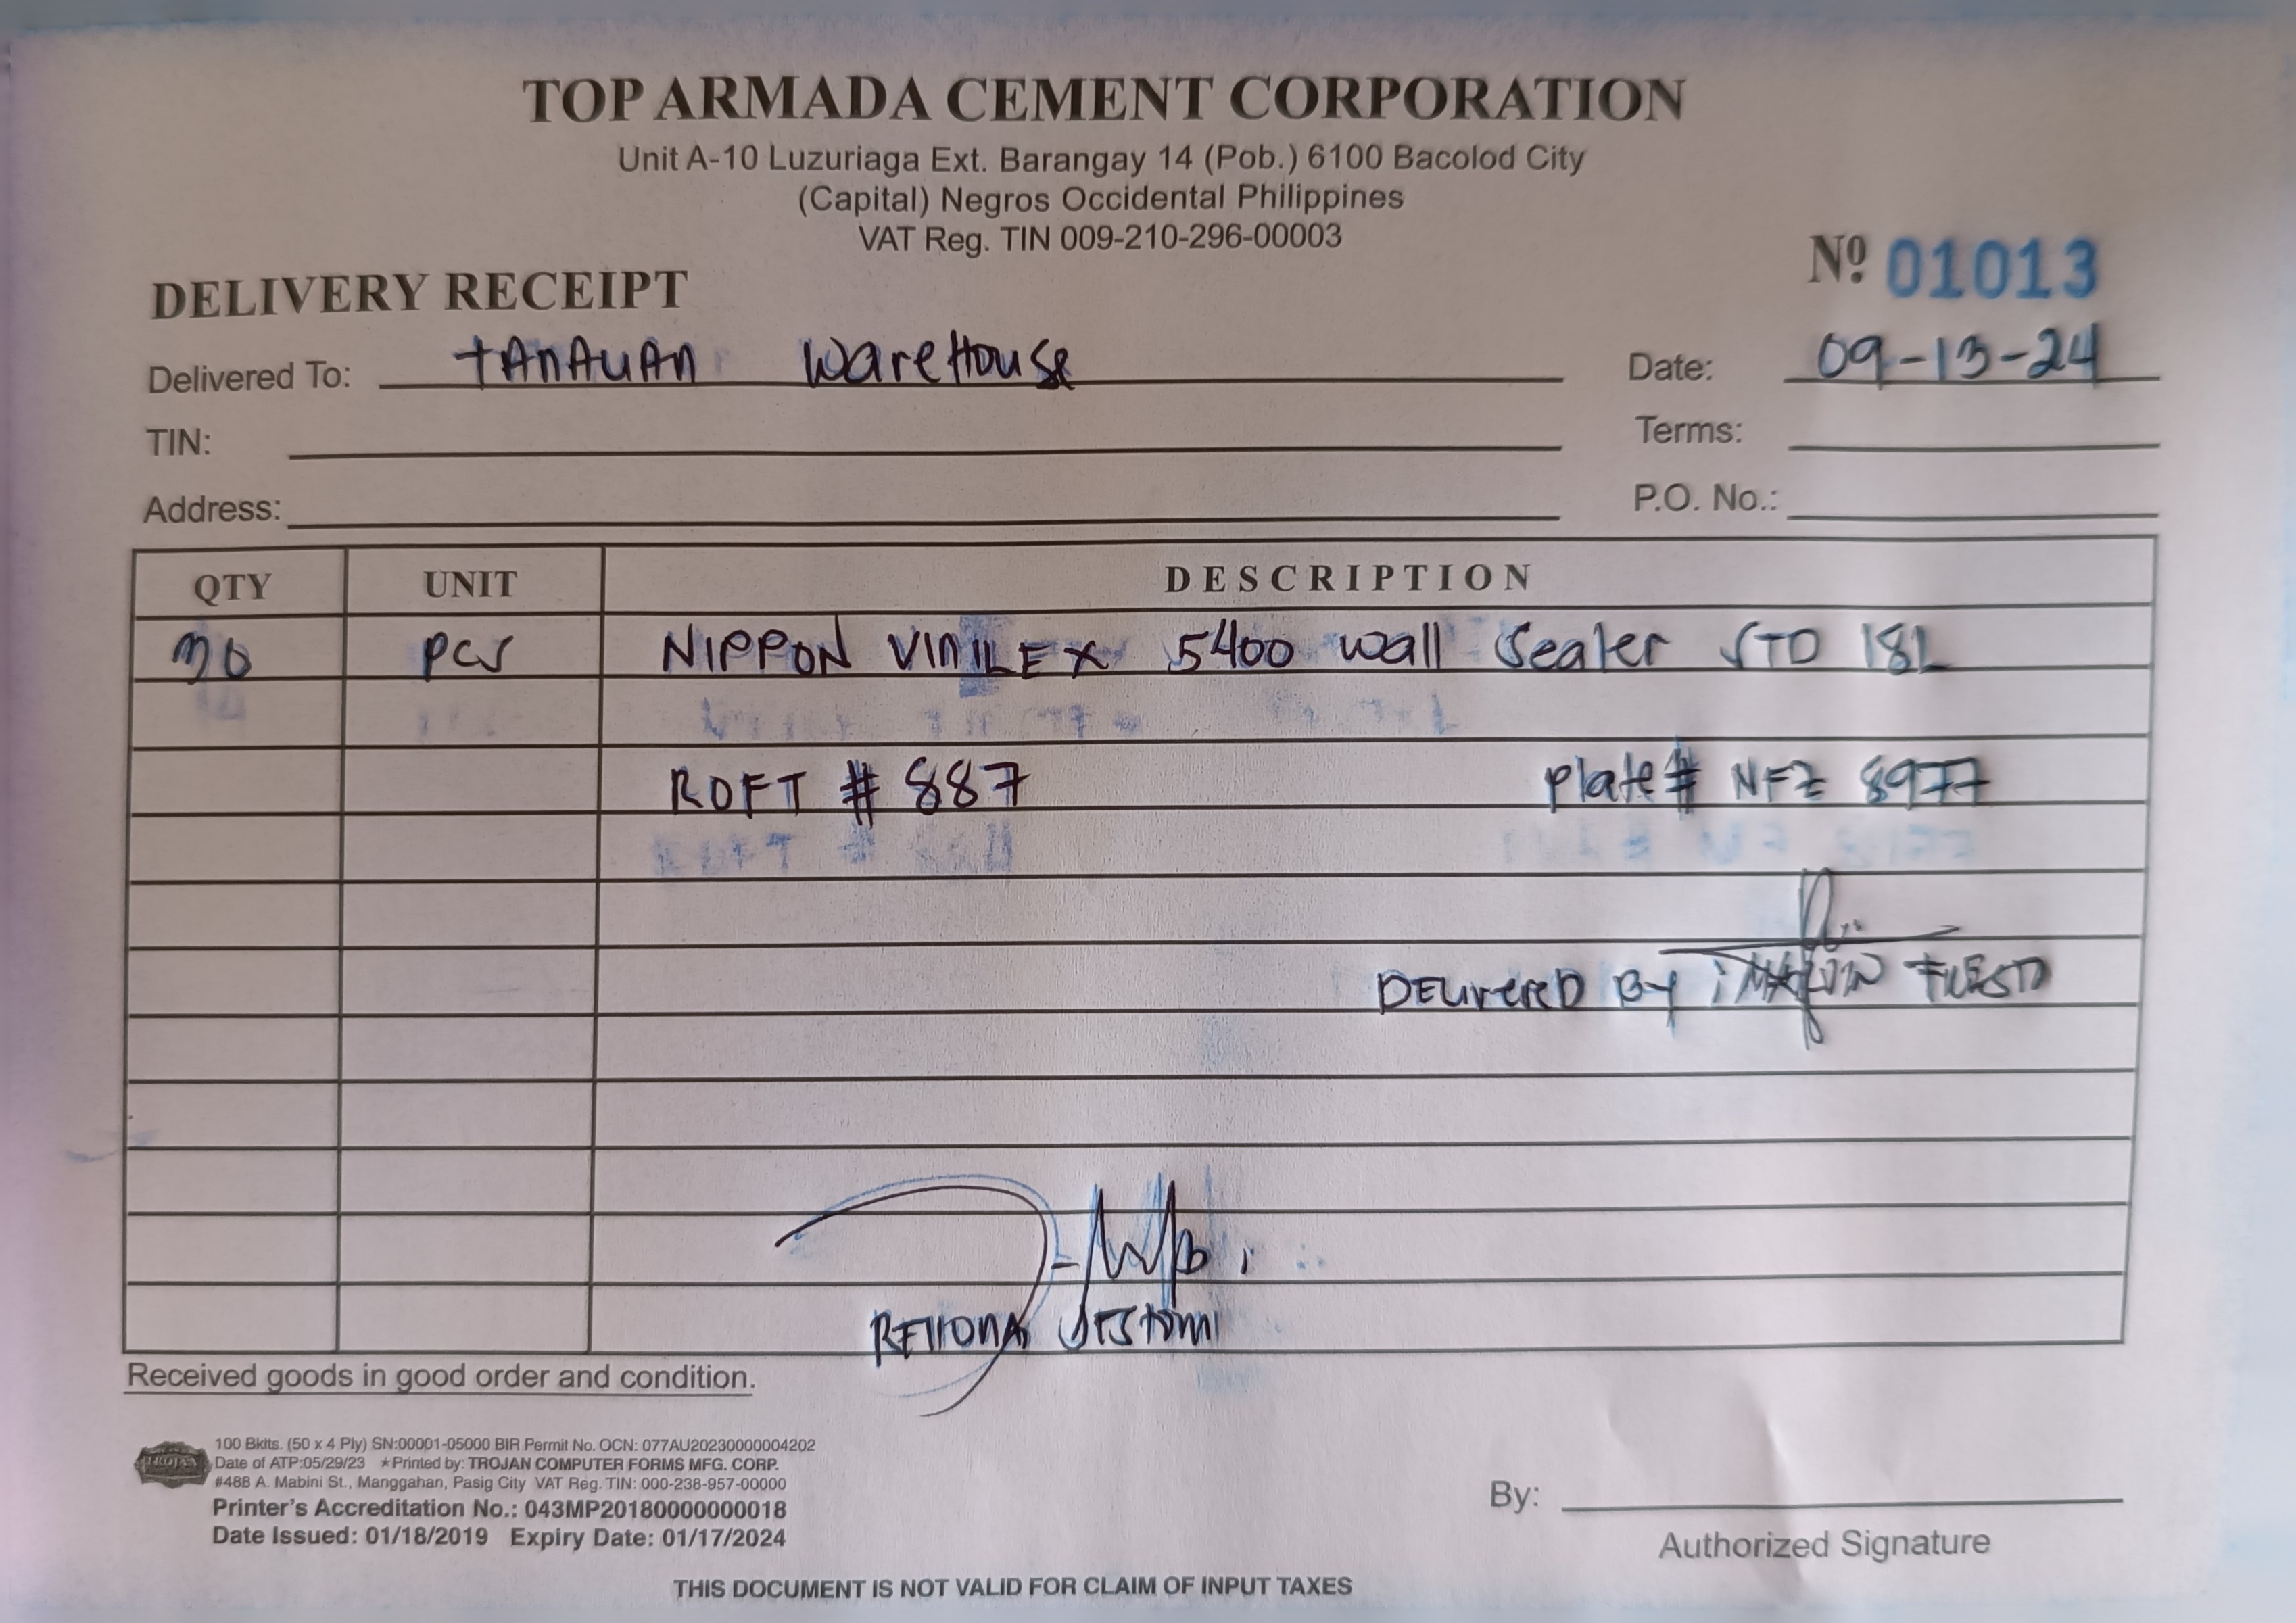 TOP ARMADA CEMENT CORPORATION
Unit A-10 Luzuriaga Ext. Barangay 14 (Pob.) 6100 Bacolod City
(Capital) Negros Occidental Philippines
VAT Reg. TIN 009-210-296-00003
Nº 01013
DELIVERY RECEIPT
Delivered To: TANAUAN WareHouse Date: 09-13-24
TIN: Terms:
Address: P.O. No.:
QTY UNIT DESCRIPTION
30 pcs NIPPON VINILEX 5400 wall Sealer STD 18L
ROFT # 887 Plate # NFZ 8977
DELIVERED BY : MARVIN
Received goods in good order and condition.
TROJAN
100 Bklts. (50 x 4 Ply) SN:00001-05000 BIR Permit No. OCN: 077AU20230000004202
Date of ATP:05/29/23 ★Printed by: TROJAN COMPUTER FORMS MFG. CORP.
#488 A. Mabini St., Manggahan, Pasig City VAT Reg. TIN: 000-238-957-00000
Printer's Accreditation No.: 043MP20180000000018
Date Issued: 01/18/2019 Expiry Date: 01/17/2024
By:
Authorized Signature
THIS DOCUMENT IS NOT VALID FOR CLAIM OF INPUT TAXES